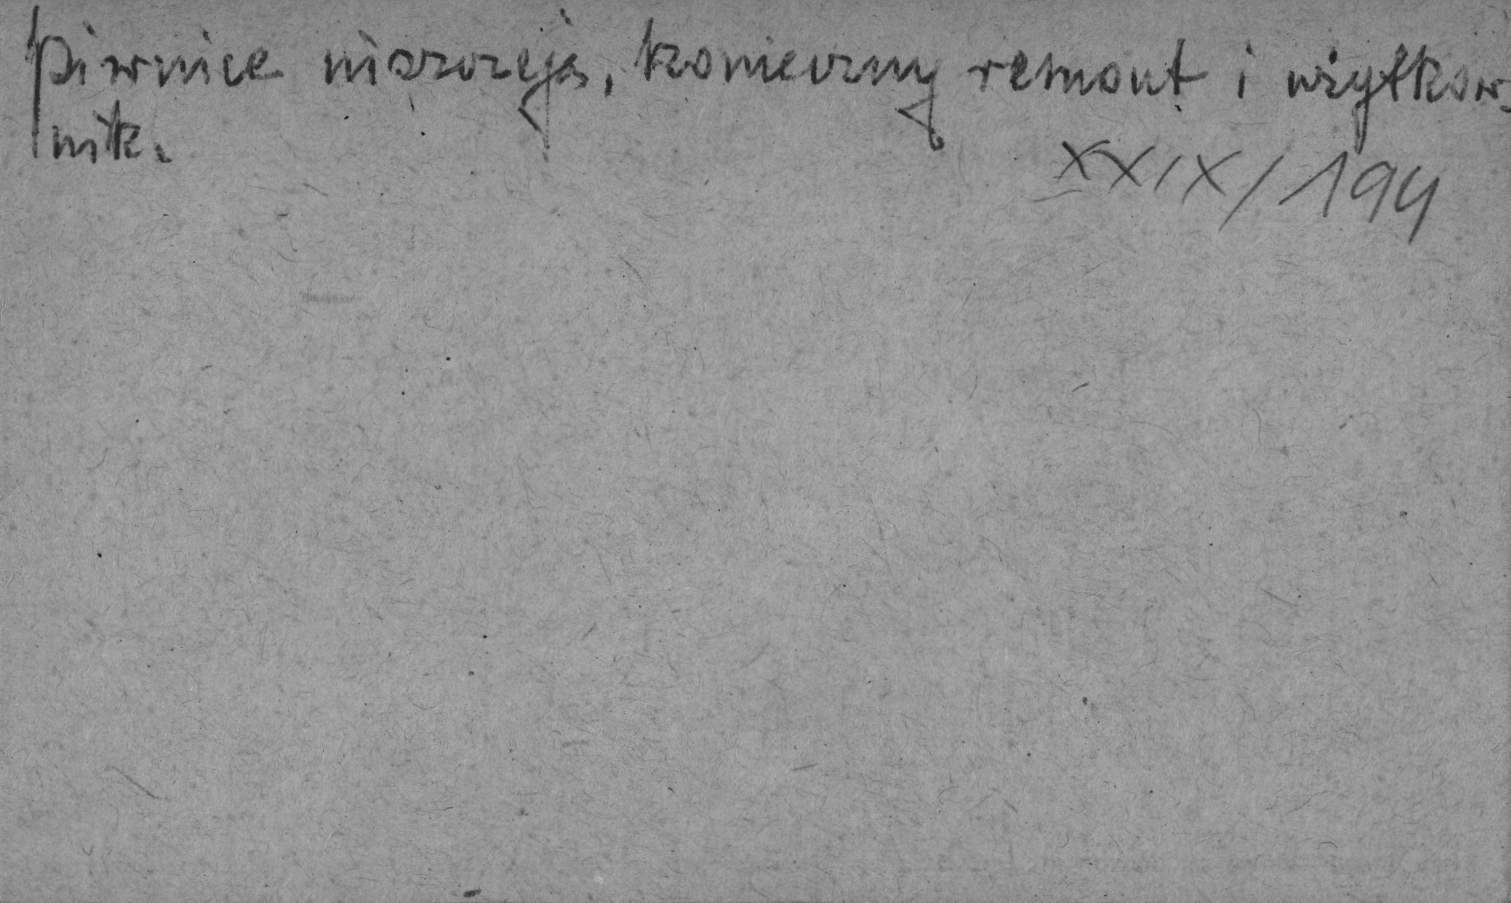 Piwnice niszczeją, konieczny remont i użytkow,
nik.
XXIX/194